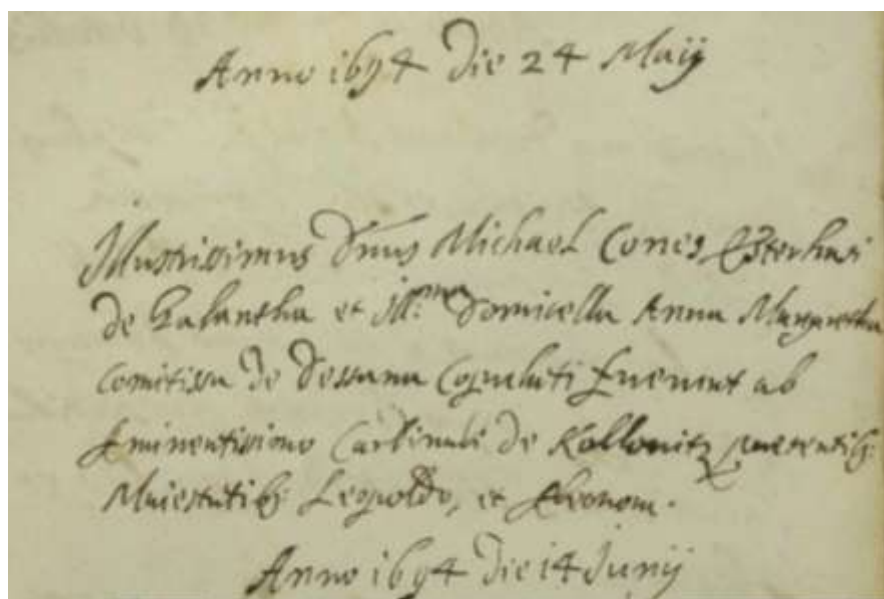 Anno 1694 Die 24 Maij
Illustrissimus Dnus Michael Comes Esterhasi
de Galantha et Ill:ma Domicella Anna Margaretha
Comitissa de Dessana Copulati fuerunt ab
Eminentissimo Cardinali de Kollonitz praesentib:
Maiestatib: Leopoldo, et Eleonora.
Anno 1694 Die 14 Junij